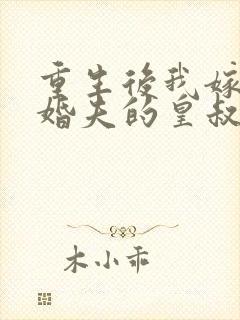 重生後我嫁
婚夫的皇叔
木小乖